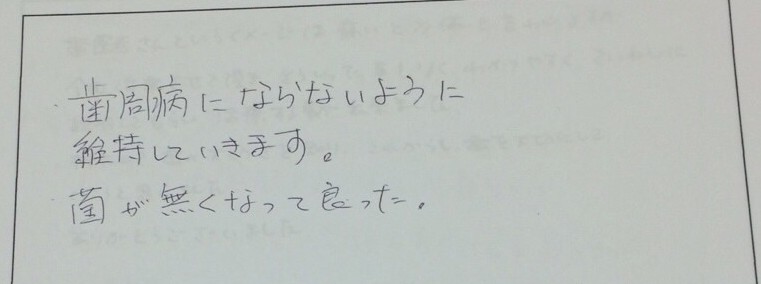 歯周病にならないように
維持していきます。
菌が無くなって良った。